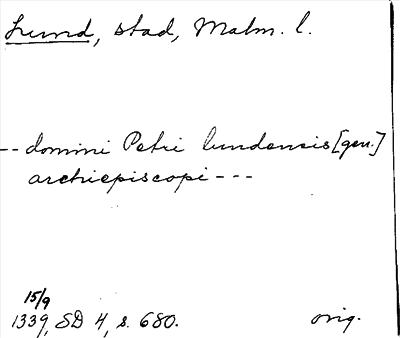 Lund, stad, Malm. l.
-- domini Petri lundensis [gen.]
archiepiscopi ---
15/9
1339, SD 4, s. 680. orig.